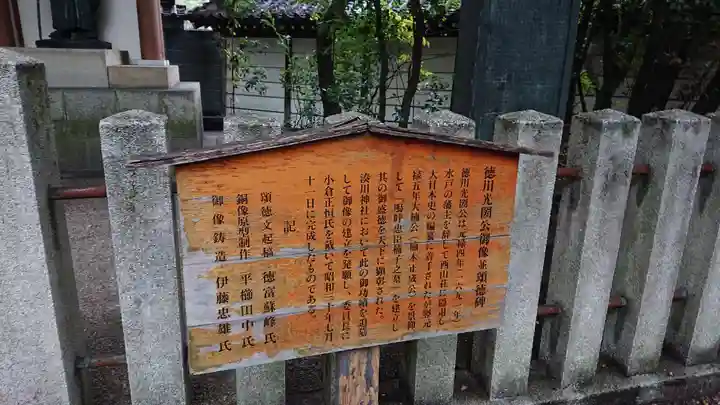 徳川光圀公御像並頌徳碑
徳川光圀公は元禄四年(一六九一年)
水戸の藩主を辞して西山荘に隠居し
大日本史の編纂に着手されたが翌元
禄五年大楠公(楠木正成公)を景仰
して「嗚呼忠臣楠子之墓」を建立し
其の御盛徳を天下に顕彰された。
湊川神社において此の御功績を追慕
して御像の建立を発願し、委員長に
小倉正恒氏を戴いて昭和三十年七月
十一日に完成したものである。
記
頌徳文起稿 徳富蘇峰氏
銅像原型制作 平櫛田中氏
御像鋳造 伊藤忠雄氏